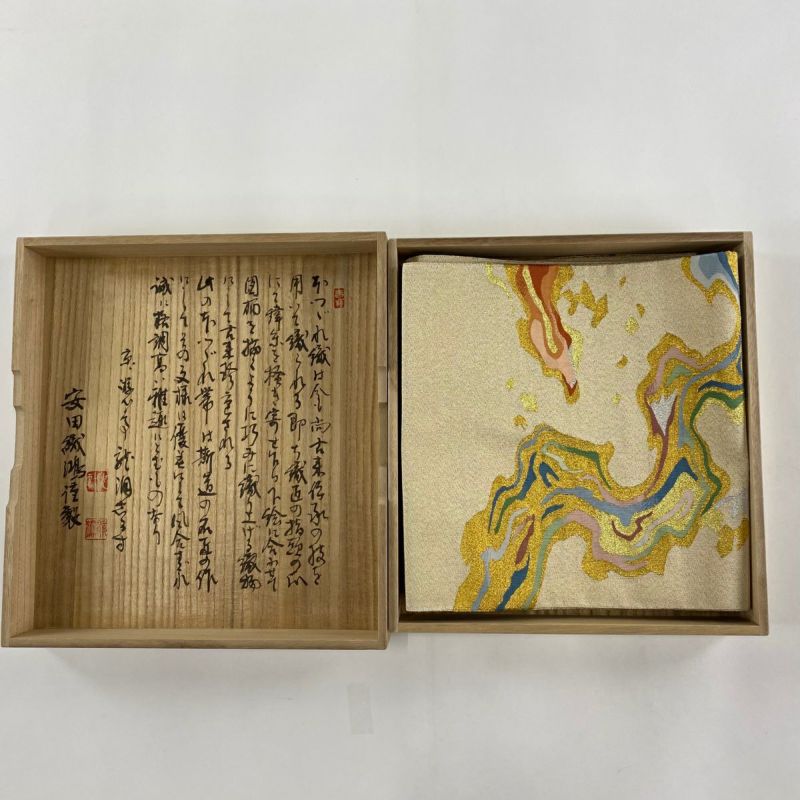 本つづれ織は今も尚古来伝承の技を
用いて織られる即ち織匠の指頭の爪
にて緯糸を掻き寄せながら下絵に合わせて
図柄を描くように巧みに織り上げる織物
にして古来珍重される
此の本つづれ帯は斯道の名匠の作
にしてその文様は優並にして風合すぐれ
誠に格調高い雅趣にとむものなり
安田織鴻謹製